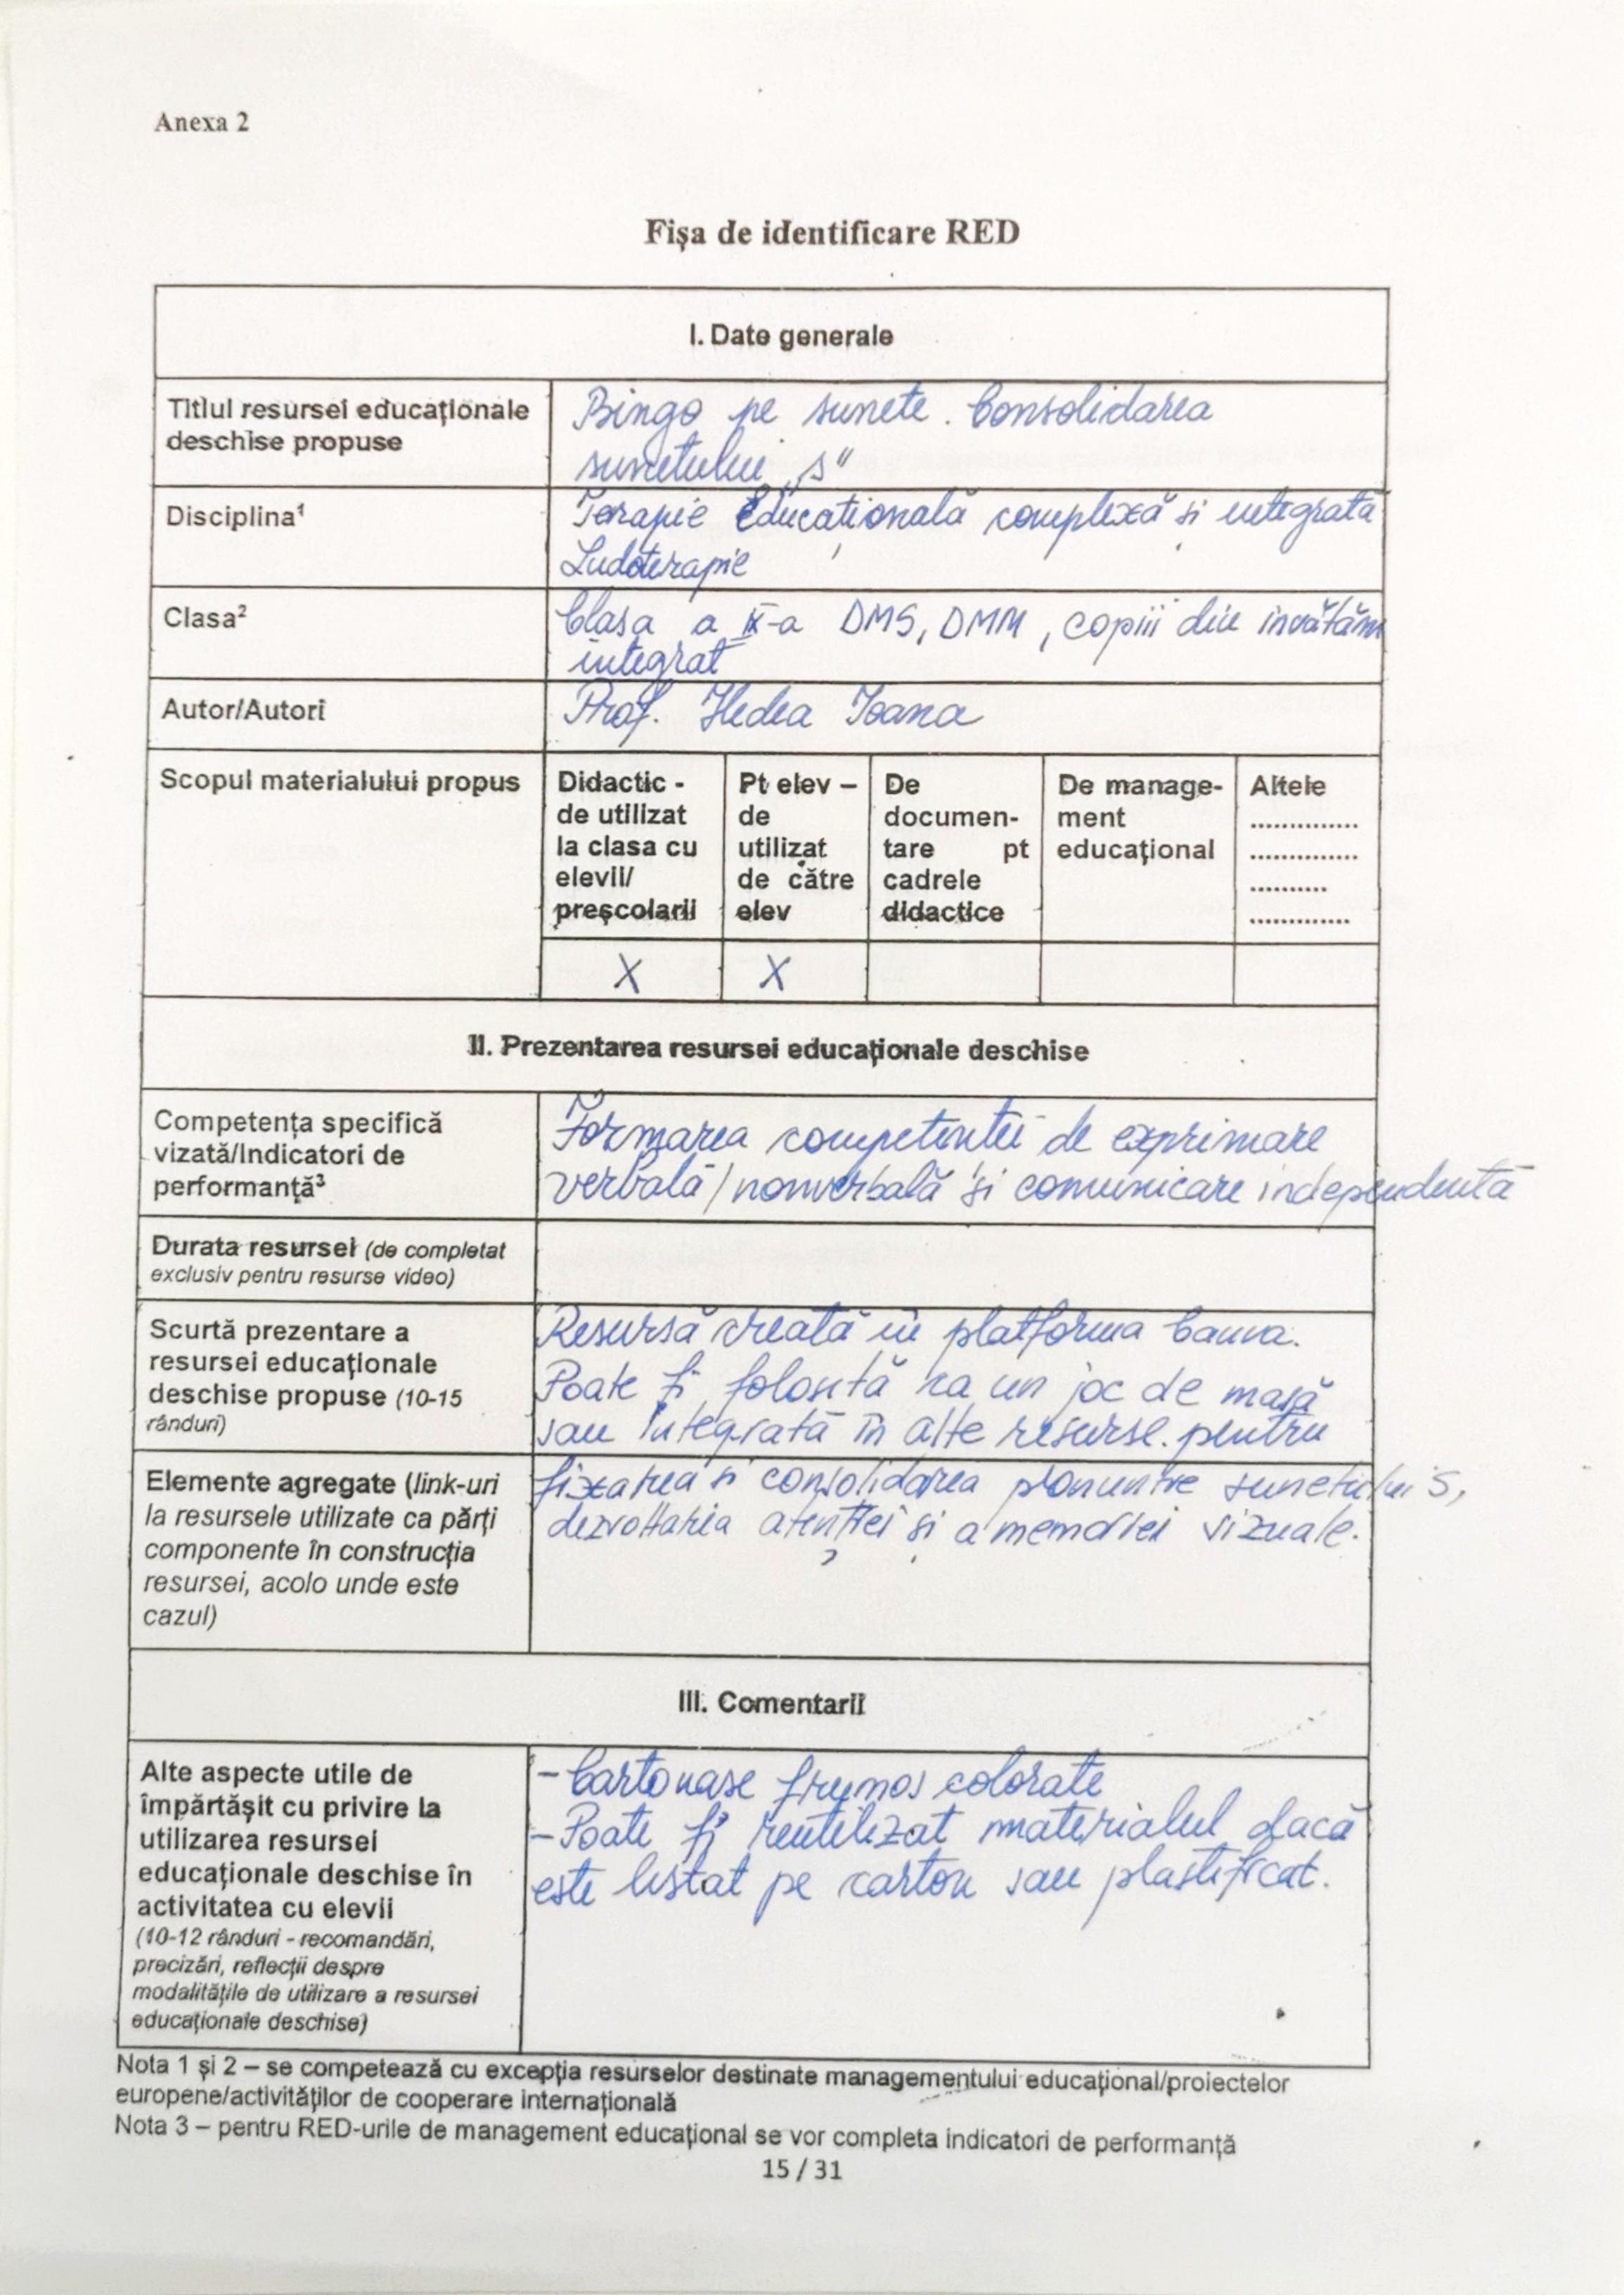 Anexa 2
Fișa de identificare RED
I. Date generale
Titlul resursei educaționale
deschise propuse
Bingo pe sunete. Consolidarea
sunetului „s”
Disciplina¹
Terapie Educațională complexă și integrată
Ludoterapie
Clasa²
Clasa a -a DMS, DMM, copiii din învățăm
integrat
Autor/Autori
Prof. Hedea Ioana
Scopul materialului propus
Didactic -
de utilizat
la clasa cu
elevii/
preșcolarii
Pt elev –
de
utilizat
de către
elev
De
documen-
tare pt
cadrele
didactice
De manage-
ment
educațional
Altele
..............
..............
..........
.............
X X
II. Prezentarea resursei educaționale deschise
Competența specifică
vizată/Indicatori de
performanță³
Formarea competenței de exprimare
verbală/nonverbală și comunicare independentă
Durata resursei (de completat
exclusiv pentru resurse video)
Scurtă prezentare a
resursei educaționale
deschise propuse (10-15
rânduri)
Resursă creată în platforma Canva.
Poate fi folosită ca un joc de masă
sau integrată în alte resurse. pentru
Elemente agregate (link-uri
la resursele utilizate ca părți
componente în construcția
resursei, acolo unde este
cazul)
fixarea si consolidarea sunetului S,
dezvoltarea atenției și a memoriei vizuale.
III. Comentarii
Alte aspecte utile de
împărtășit cu privire la
utilizarea resursei
educaționale deschise în
activitatea cu elevii
(10-12 rânduri - recomandări,
precizări, reflecții despre
modalitățile de utilizare a resursei
educaționale deschise)
- Cartonase frumos colorate
- Poate fi reutilizat materialul dacă
este listat pe carton sau plastificat.
Nota 1 și 2 – se competează cu excepția resurselor destinate managementului educațional/proiectelor
europene/activităților de cooperare internațională
Nota 3 – pentru RED-urile de management educațional se vor completa indicatori de performanță
15 / 31